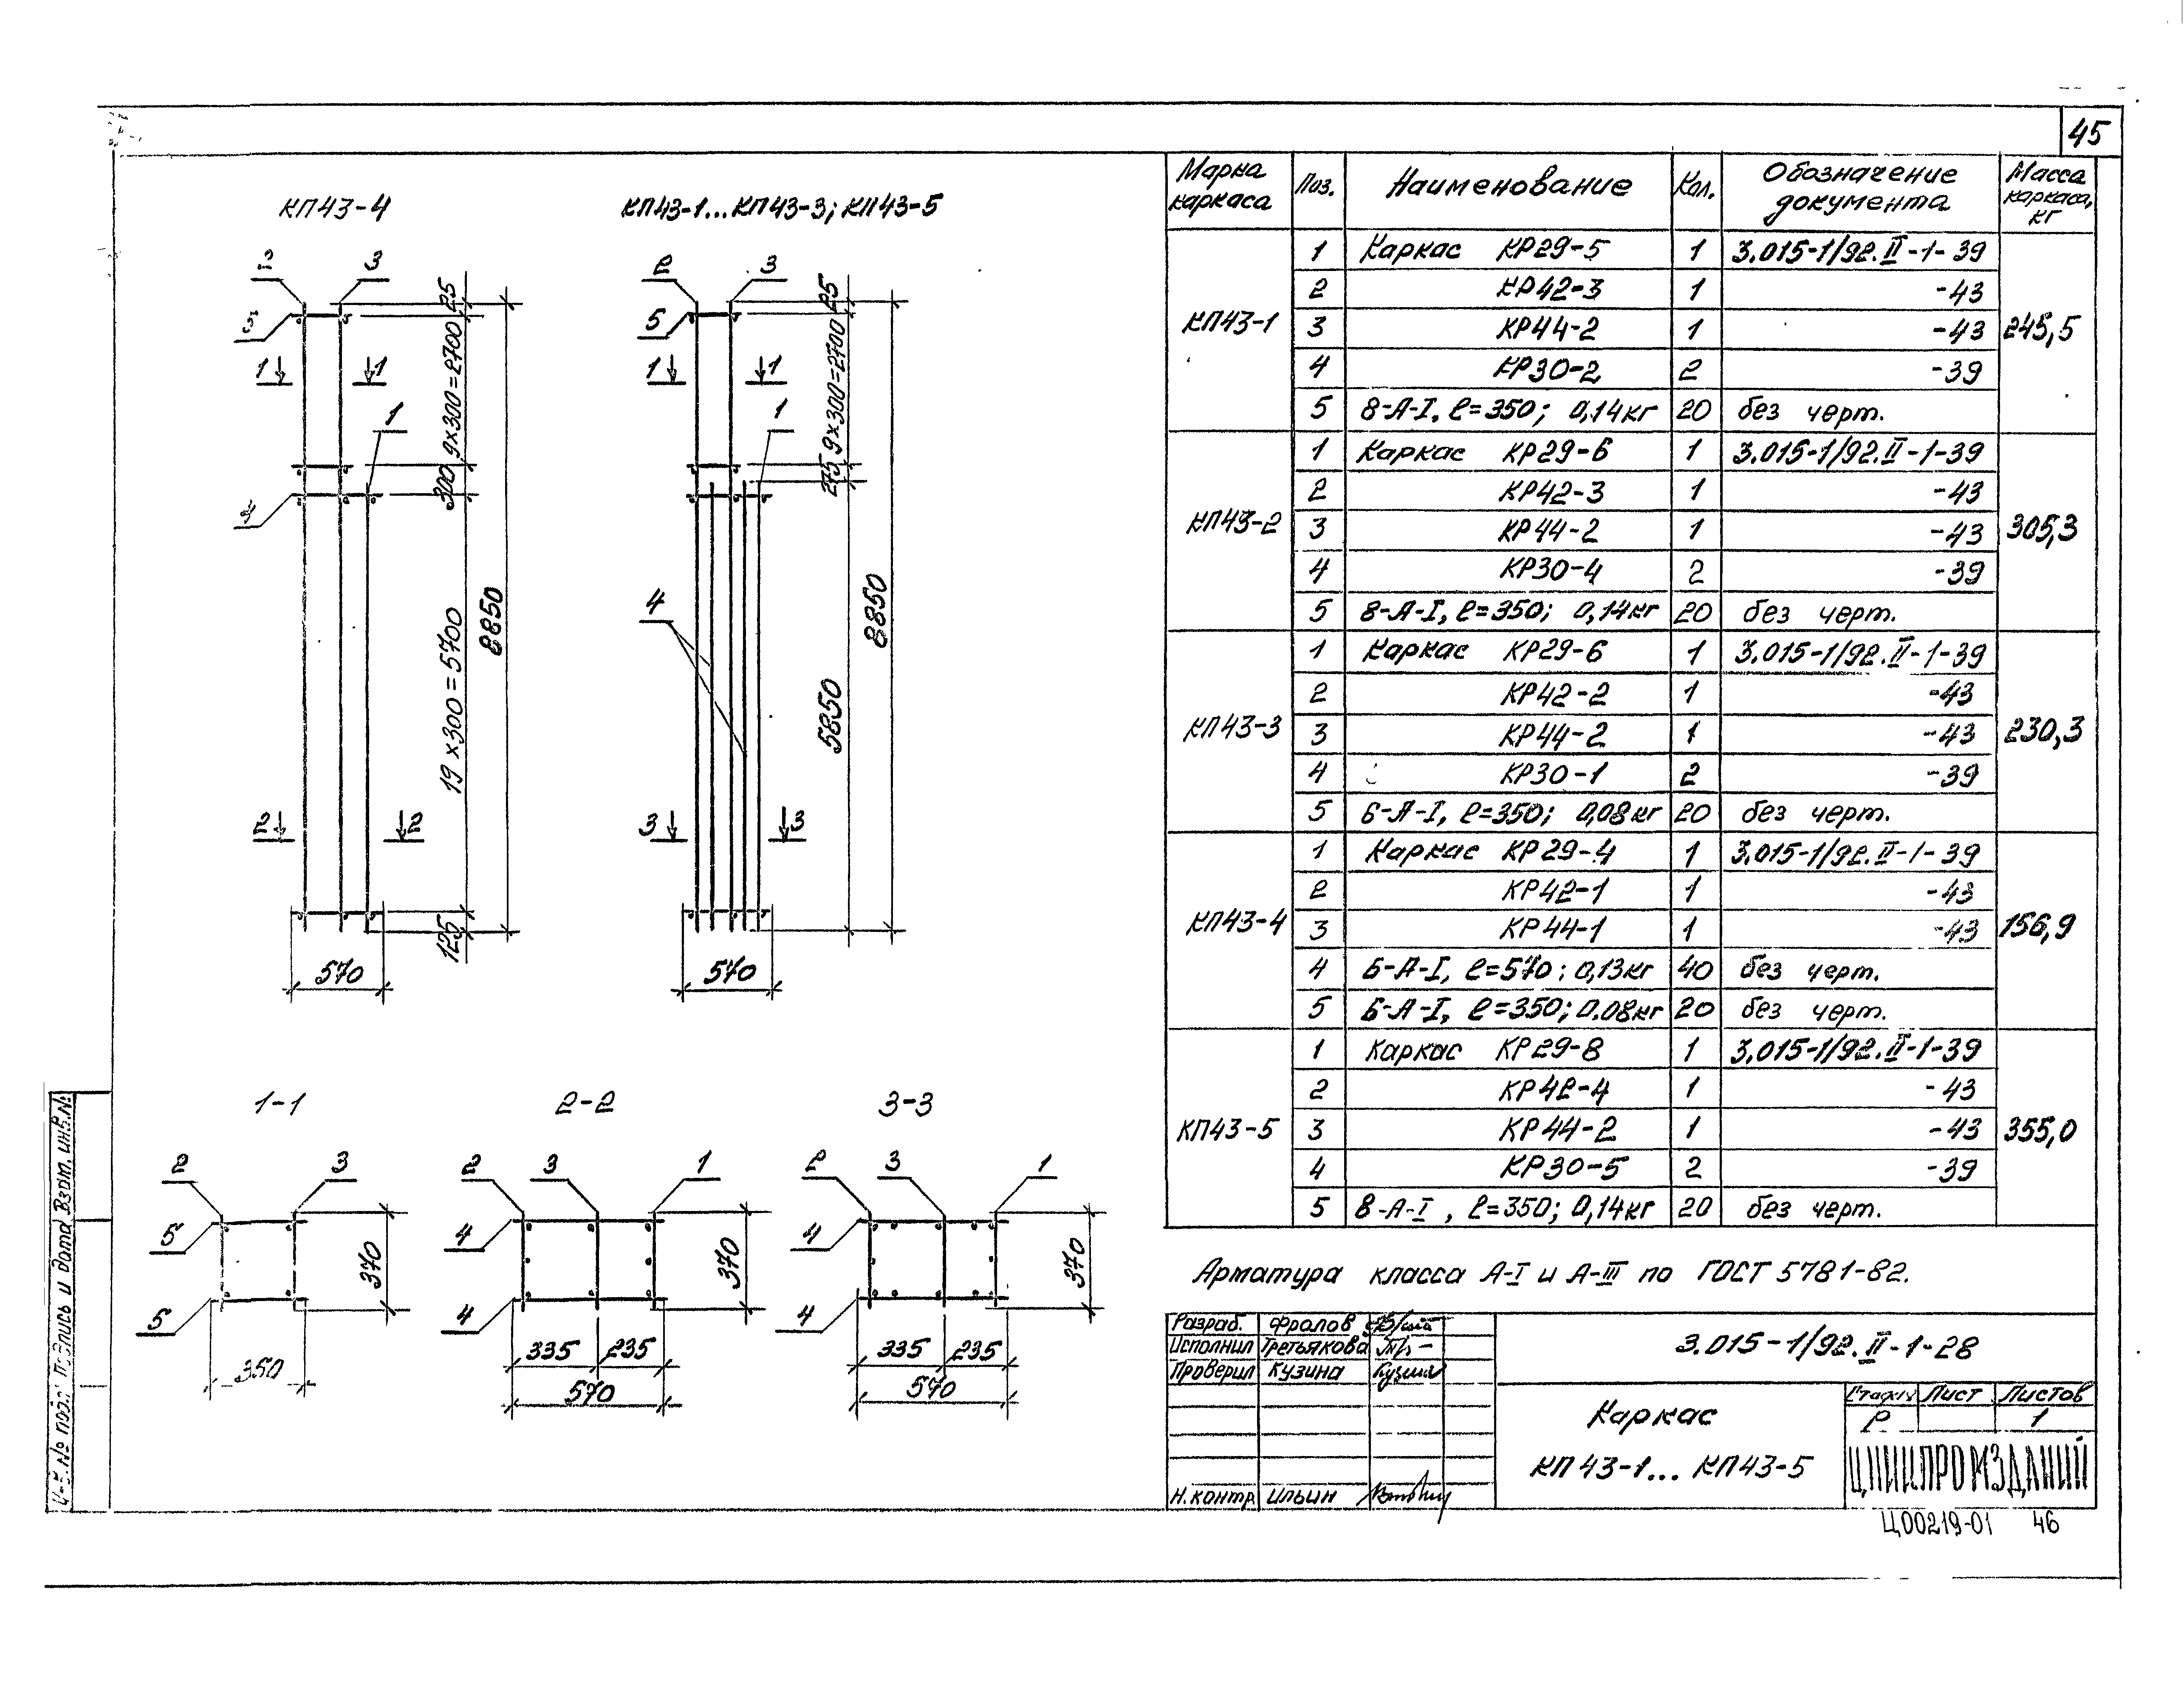 45
КП43-4
КП43-1...КП43-3; КП43-5
2 3
5
1 1
1
4
2 2
25
9×300=2700
300
19×300=5700
125
8850
570
2 3
5
1 1
1
4
3 3
25
9×300=2700
275
5850
8850
570
1-1
2 3
5
5
370
350
2-2
2 3 1
4
4
370
335 235
570
3-3
2 3 1
4
4
370
335 235
570
Марка каркаса Поз. Наименование Кол. Обозначение документа Масса каркаса, кг
КП43-1 245,5
1 Каркас КР29-5 1 3.015-1/92.II-1-39
2 КР42-3 1 -43
3 КР44-2 1 -43
4 КР30-2 2 -39
5 8-А-I, ℓ=350; 0,14кг 20 без черт.
КП43-2 305,3
1 Каркас КР29-6 1 3.015-1/92.II-1-39
2 КР42-3 1 -43
3 КР44-2 1 -43
4 КР30-4 2 -39
5 8-А-I, ℓ=350; 0,14кг 20 без черт.
КП43-3 230,3
1 Каркас КР29-6 1 3.015-1/92.II-1-39
2 КР42-2 1 -43
3 КР44-2 1 -43
4 КР30-1 2 -39
5 6-А-I, ℓ=350; 0,08кг 20 без черт.
КП43-4 156,9
1 Каркас КР29-4 1 3.015-1/92.II-1-39
2 КР42-1 1 -43
3 КР44-1 1 -43
4 6-А-I, ℓ=570; 0,13кг 40 без черт.
5 6-А-I, ℓ=350; 0.08кг 20 без черт.
КП43-5 355,0
1 Каркас КР29-8 1 3.015-1/92.II-1-39
2 КР42-4 1 -43
3 КР44-2 1 -43
4 КР30-5 2 -39
5 8-А-I, ℓ=350; 0,14кг 20 без черт.
Арматура класса А-I и А-III по ГОСТ 5781-82.
Разраб. Фролов
Исполнил Третьякова
Проверил Кузина
Н.контр. Ильин
3.015-1/92.II-1-28
Каркас
КП43-1... КП43-5
Стадия Лист Листов
Р 1
ЦНИИПРОМЗДАНИЙ
Ц00219-01 46
Инв.№ подл. Подпись и дата Взам. инв.№